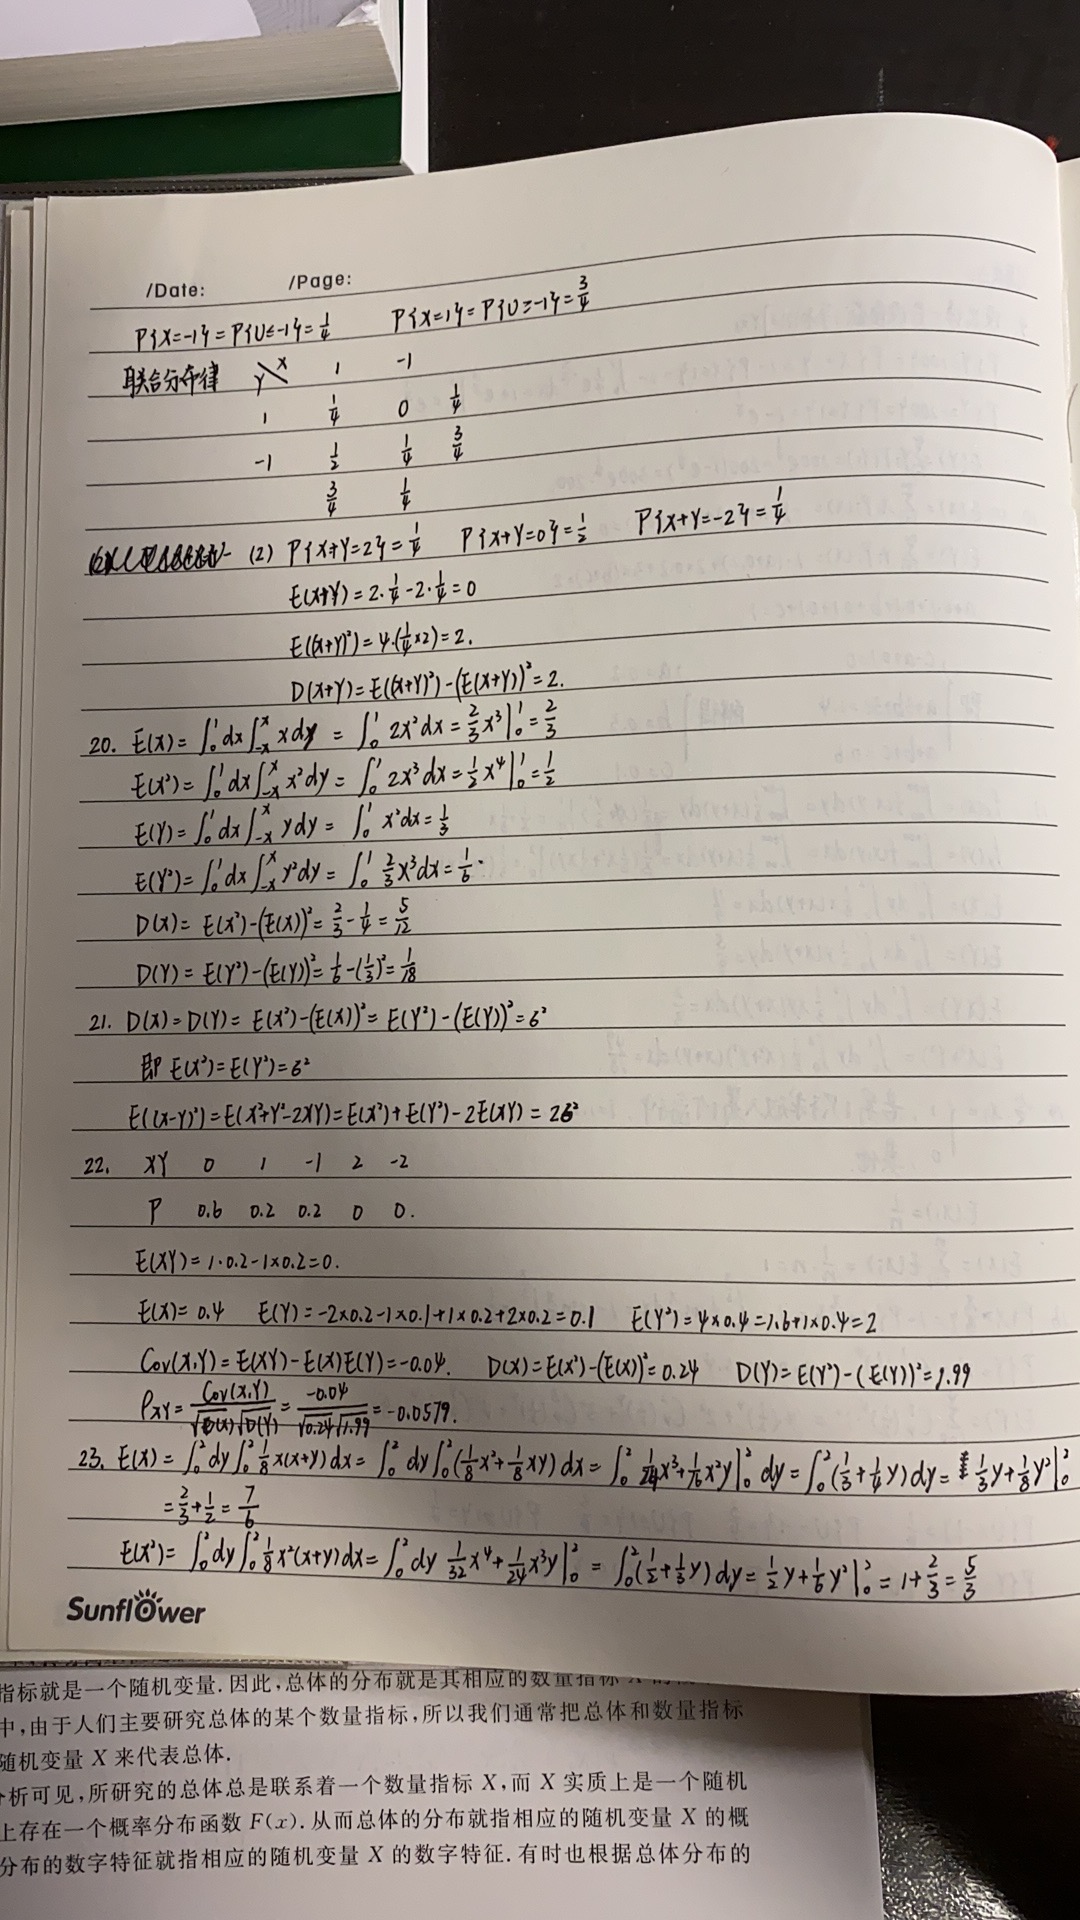 /Date: /Page:
P{X=-1}=P{U≤-1}=1/4 P{X=1}=P{U≥-1}=3/4
联合分布律 Y\X 1 -1
1 1/4 0 1/4
-1 1/2 1/4 3/4
3/4 1/4
(2) P{X+Y=2}=1/4 P{X+Y=0}=1/2 P{X+Y=-2}=1/4
E(X+Y)=2·1/4-2·1/4=0
E((X+Y)²)=4·(1/4×2)=2.
D(X+Y)=E((X+Y)²)-(E(X+Y))²=2.
20. E(X)=∫₀¹dx∫₋ₓˣxdy=∫₀¹2x²dx=2/3x³|₀¹=2/3
E(X²)=∫₀¹dx∫₋ₓˣx²dy=∫₀¹2x³dx=1/2x⁴|₀¹=1/2
E(Y)=∫₀¹dx∫₋ₓˣydy=∫₀¹x²dx=1/3
E(Y²)=∫₀¹dx∫₋ₓˣy²dy=∫₀¹2/3x³dx=1/6.
D(X)=E(X²)-(E(X))²=2/3-1/4=5/12
D(Y)=E(Y²)-(E(Y))²=1/6-(1/3)²=1/18
21. D(X)=D(Y)=E(X²)-(E(X))²=E(Y²)-(E(Y))²=6²
即 E(X²)=E(Y²)=6²
E((X-Y)²)=E(X²+Y²-2XY)=E(X²)+E(Y²)-2E(XY)=26²
22. XY 0 1 -1 2 -2
P 0.6 0.2 0.2 0 0.
E(XY)=1·0.2-1×0.2=0.
E(X)=0.4 E(Y)=-2×0.2-1×0.1+1×0.2+2×0.2=0.1 E(Y²)=4×0.4=1.6+1×0.4=2
Cov(X,Y)=E(XY)-E(X)E(Y)=-0.04. D(X)=E(X²)-(E(X))²=0.24 D(Y)=E(Y²)-(E(Y))²=1.99
ρXY=Cov(X,Y)/√D(X)√D(Y)=-0.04/√0.24√1.99=-0.0579.
23. E(X)=∫₀²dy∫₀²1/8x(x+y)dx=∫₀²dy∫₀²(1/8x²+1/8xy)dx=∫₀²1/24x³+1/16x²y|₀²dy=∫₀²(1/3+1/4y)dy=1/3y+1/8y²|₀²
=2/3+1/2=7/6
E(X²)=∫₀²dy∫₀²1/8x²(x+y)dx=∫₀²dy 1/32x⁴+1/24x³y|₀²=∫₀²(1/2+1/3y)dy=1/2y+1/6y²|₀²=1+2/3=5/3
Sunflower
指标就是一个随机变量.因此,总体的分布就是其相应的数量指标 X
中,由于人们主要研究总体的某个数量指标,所以我们通常把总体和数量指标
随机变量 X 来代表总体.
析可见,所研究的总体总是联系着一个数量指标 X,而 X 实质上是一个随机
上存在一个概率分布函数 F(x).从而总体的分布就指相应的随机变量 X 的概
分布的数字特征就指相应的随机变量 X 的数字特征.有时也根据总体分布的